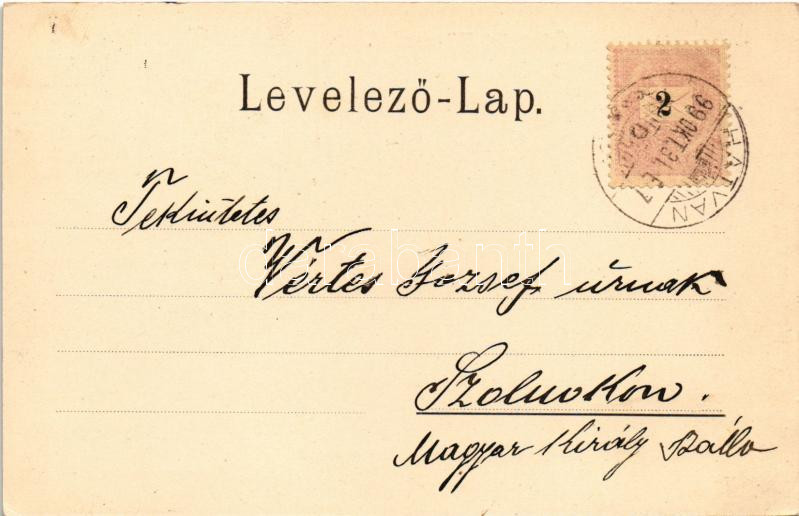 Levelező-Lap.
2
HATVAN
99 OKT. 31. É7
Tekintetes
Vértes József úrnak
Szolnokon.
Magyar Király Szálló
darabanth